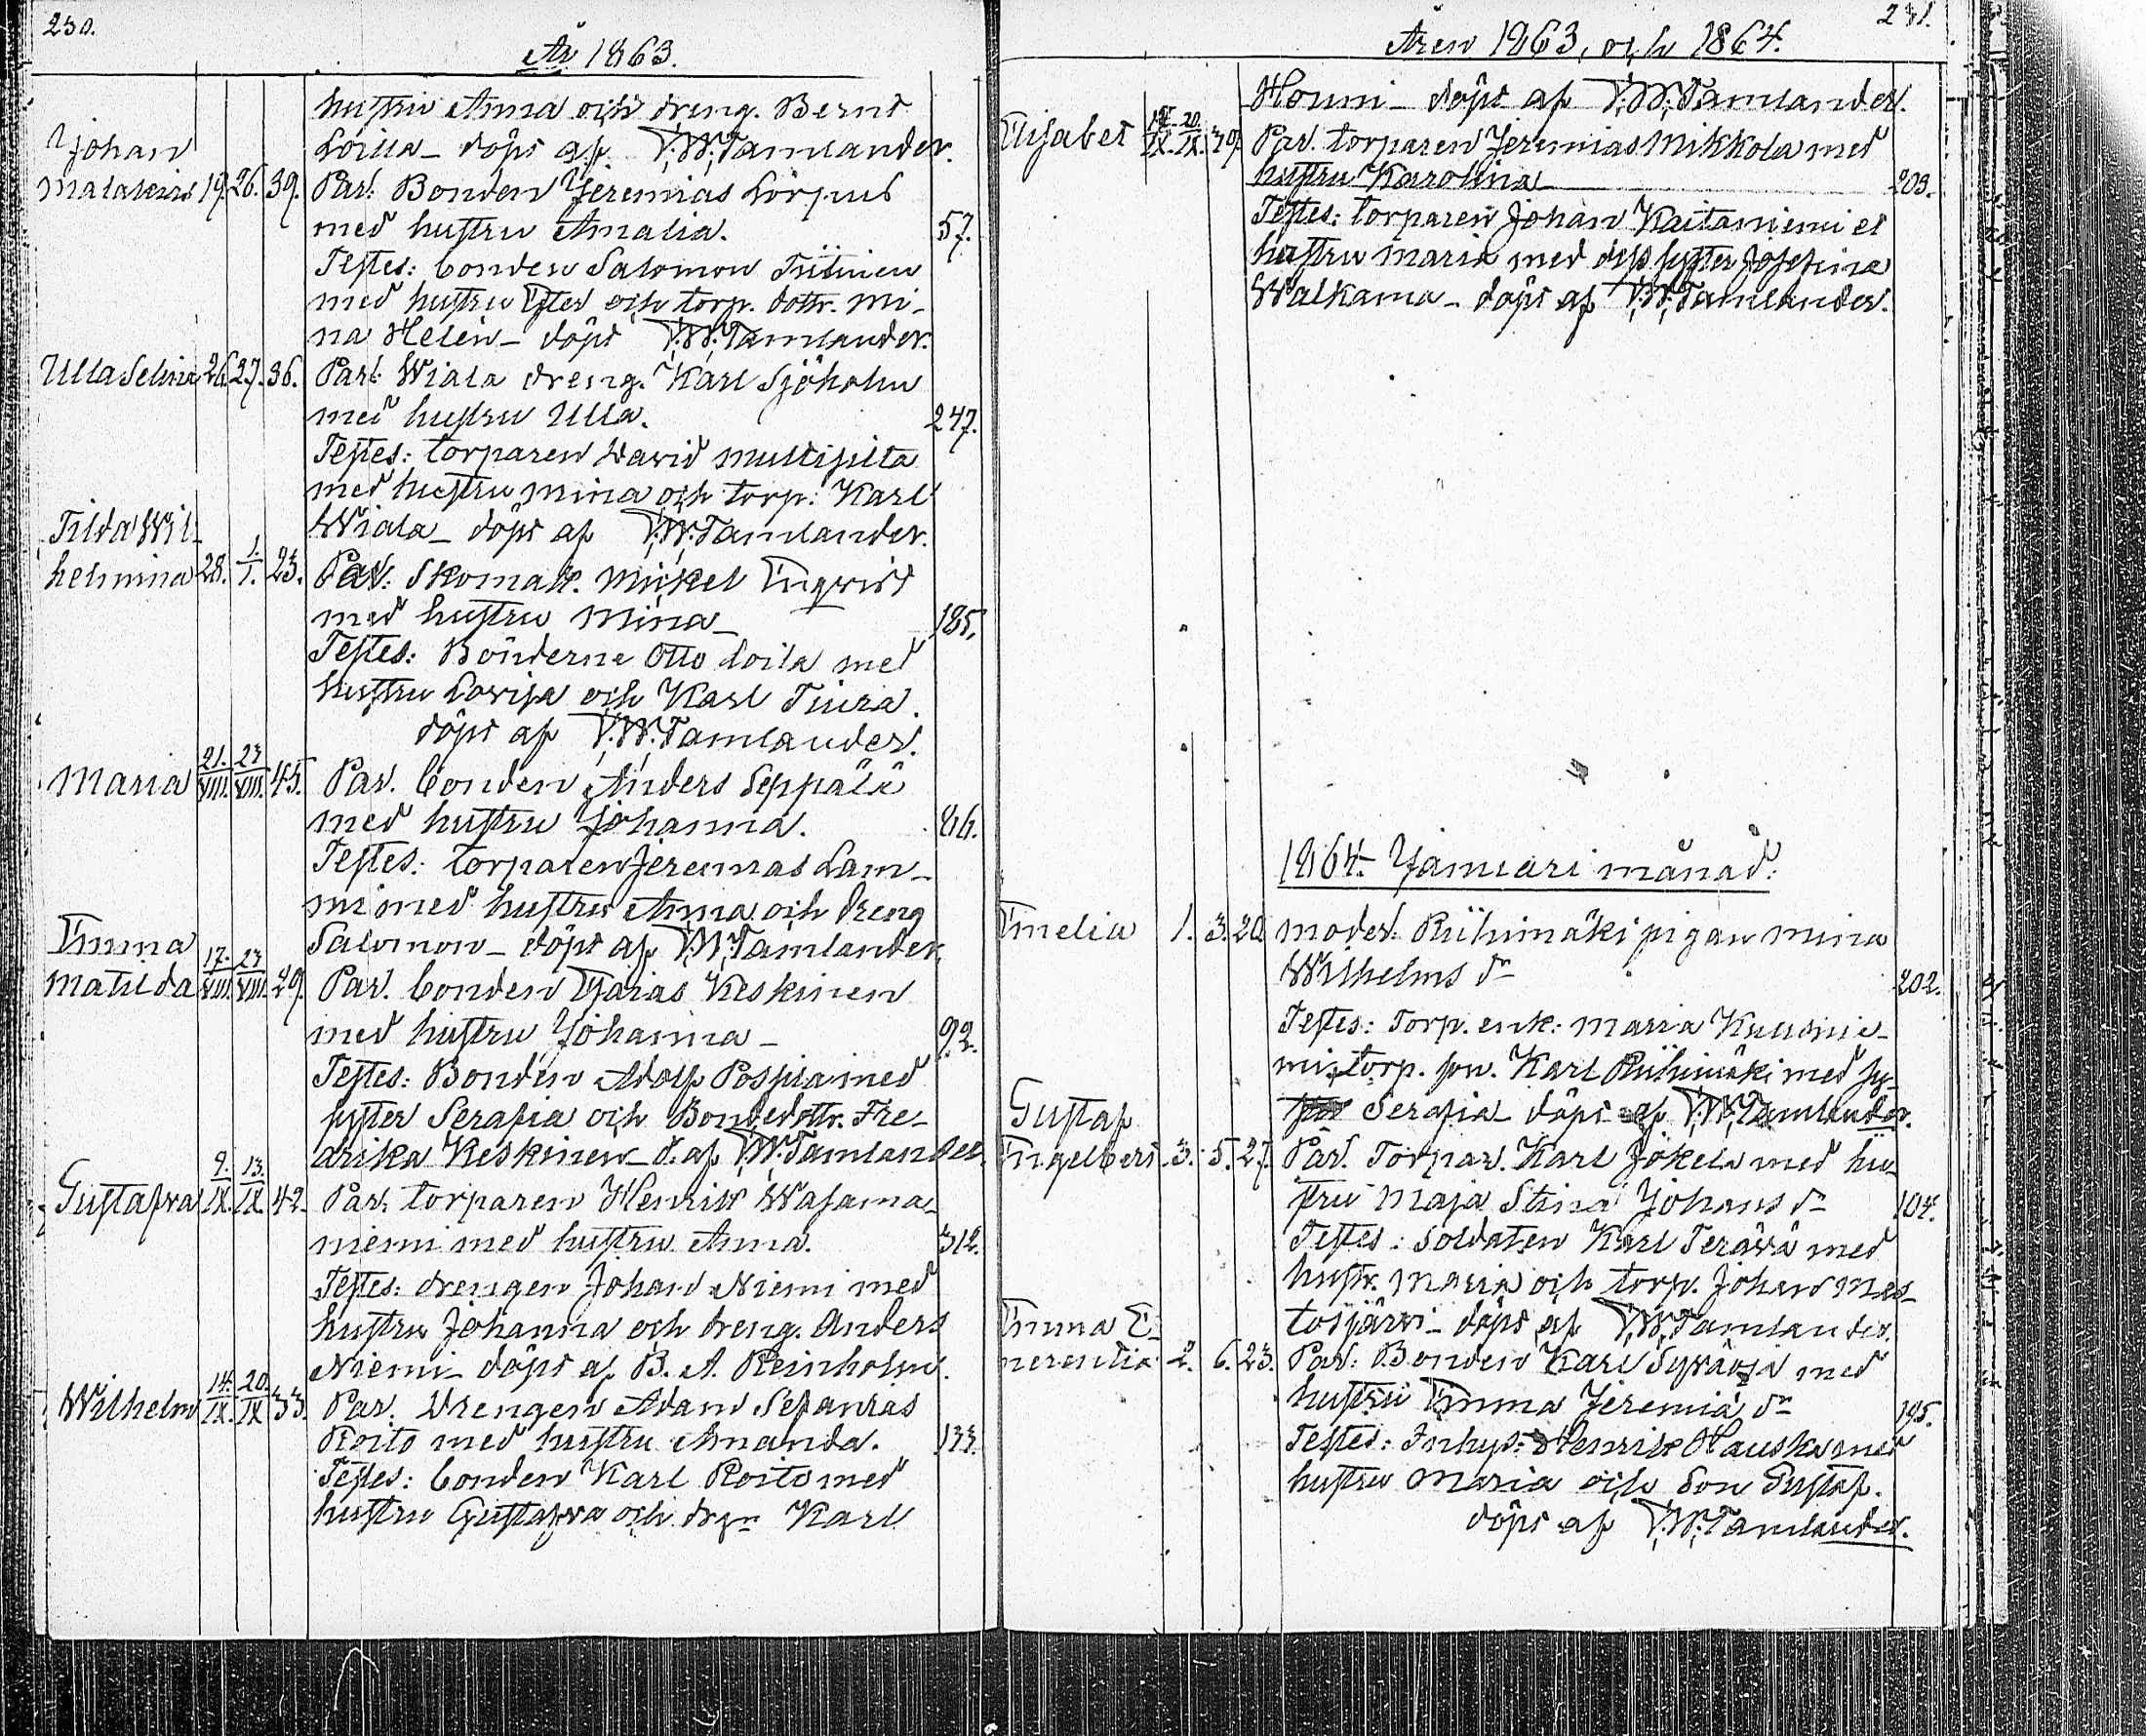 230.
År 1863.
hustru Anna och dreng. Bernd
Loilla - döpt af F. W. Tamlander.
Johan
Malakias 19. 26. 39. Par: Bonden Jeremias Lörpus
med hustru Amalia. 57.
Testes: bonden Salomon
med hustru Ester och torp. dottr. Mi-
na Helen - döpt F. W. Tamlander.
Ulla Selina 26. 27. 36. Par: Wiala dreng. Karl Sjöholm
med hustru Ulla. 247.
Testes: torparen David Multisilta
med hustru Mina och torp: Karl
Wiala - döpt af F. W. Tamlander.
Tilda Wil-
helmina 28. 1./1. 23. Par: Skomak. Mickel Engvist
med hustru Mina - 185.
Testes: Bönderne Otto Loila med
hustru Lovisa och Karl Tiura.
döpt af F. W. Tamlander.
Maria 21./VIII. 23/VIII. 45. Par. bonden Anders Seppälä
med hustru Johanna. 86.
Testes: torparen Jeremias Lam-
mi med hustru Anna och dreng
Salomon - döpt af F. W. Tamlander.
Emma
Matilda 17./VIII. 23/VIII. 29. Par. bonden Esaias Keskinen
med hustru Johanna - 92.
Testes: Bonden Adolf Pospia med
syster Serafia och Bondedottr. Fre-
drika Keskinen - d. af F. W. Tamlander.
Gustafva 9./IX. 13./IX. 42. Par. torparen Henrik Wasama-
niemi med hustru Anna. 312.
Testes: drengen Johan Niemi med
hustru Johanna och dreng. Anders
Niemi döpt af B. A. Reinholm.
Wilhelm 14./IX. 20./IX 33. Par. Drengen Adam Sefanias
Roito med hustru Amanda. 133.
Testes: bonden Karl Roito med
hustru Gustafva och drgn Karl
231.
Åren 1863, och 1864.
Honni - döpt af F. W. Tamlander.
Elisabet /IX. 20./IX. 39. Par. torparen Jeremias Mikkola med
hustru Karolina 203.
Testes: torparen Johan Kaitaniemi et
hustru Maria med dess syster Josefina
Walkama - döpt af F. W. Tamlander.
1864. Januari månad:
Emelia 1. 3. 20. moder: Riihimäki pigan Mina
Wilhelms dr 202.
Testes: Torp. enk: Maria
mi, torp. son. Karl Riihimäki med sy-
ster Serafia - döpt af F. W. Tamlander.
Gustaf
Engelbert 3. 5. 27. Par. Torpar. Karl Jokela med hu-
stru Maja Stina Johans dr 104.
Testes: Soldaten Karl Terävä med
hustr. Maria och torp. Johan Mas-
tosjärvi - döpt af F. W. Tamlander.
Emma E-
merentia 2. 6. 23. Par: Bonden Karl Syväoja med
hustru Emma Jeremia dr 195.
Testes: Inhys: Henrik Hauska med
hustru Maria och son Gustaf.
döpt af F. W. Tamlander.